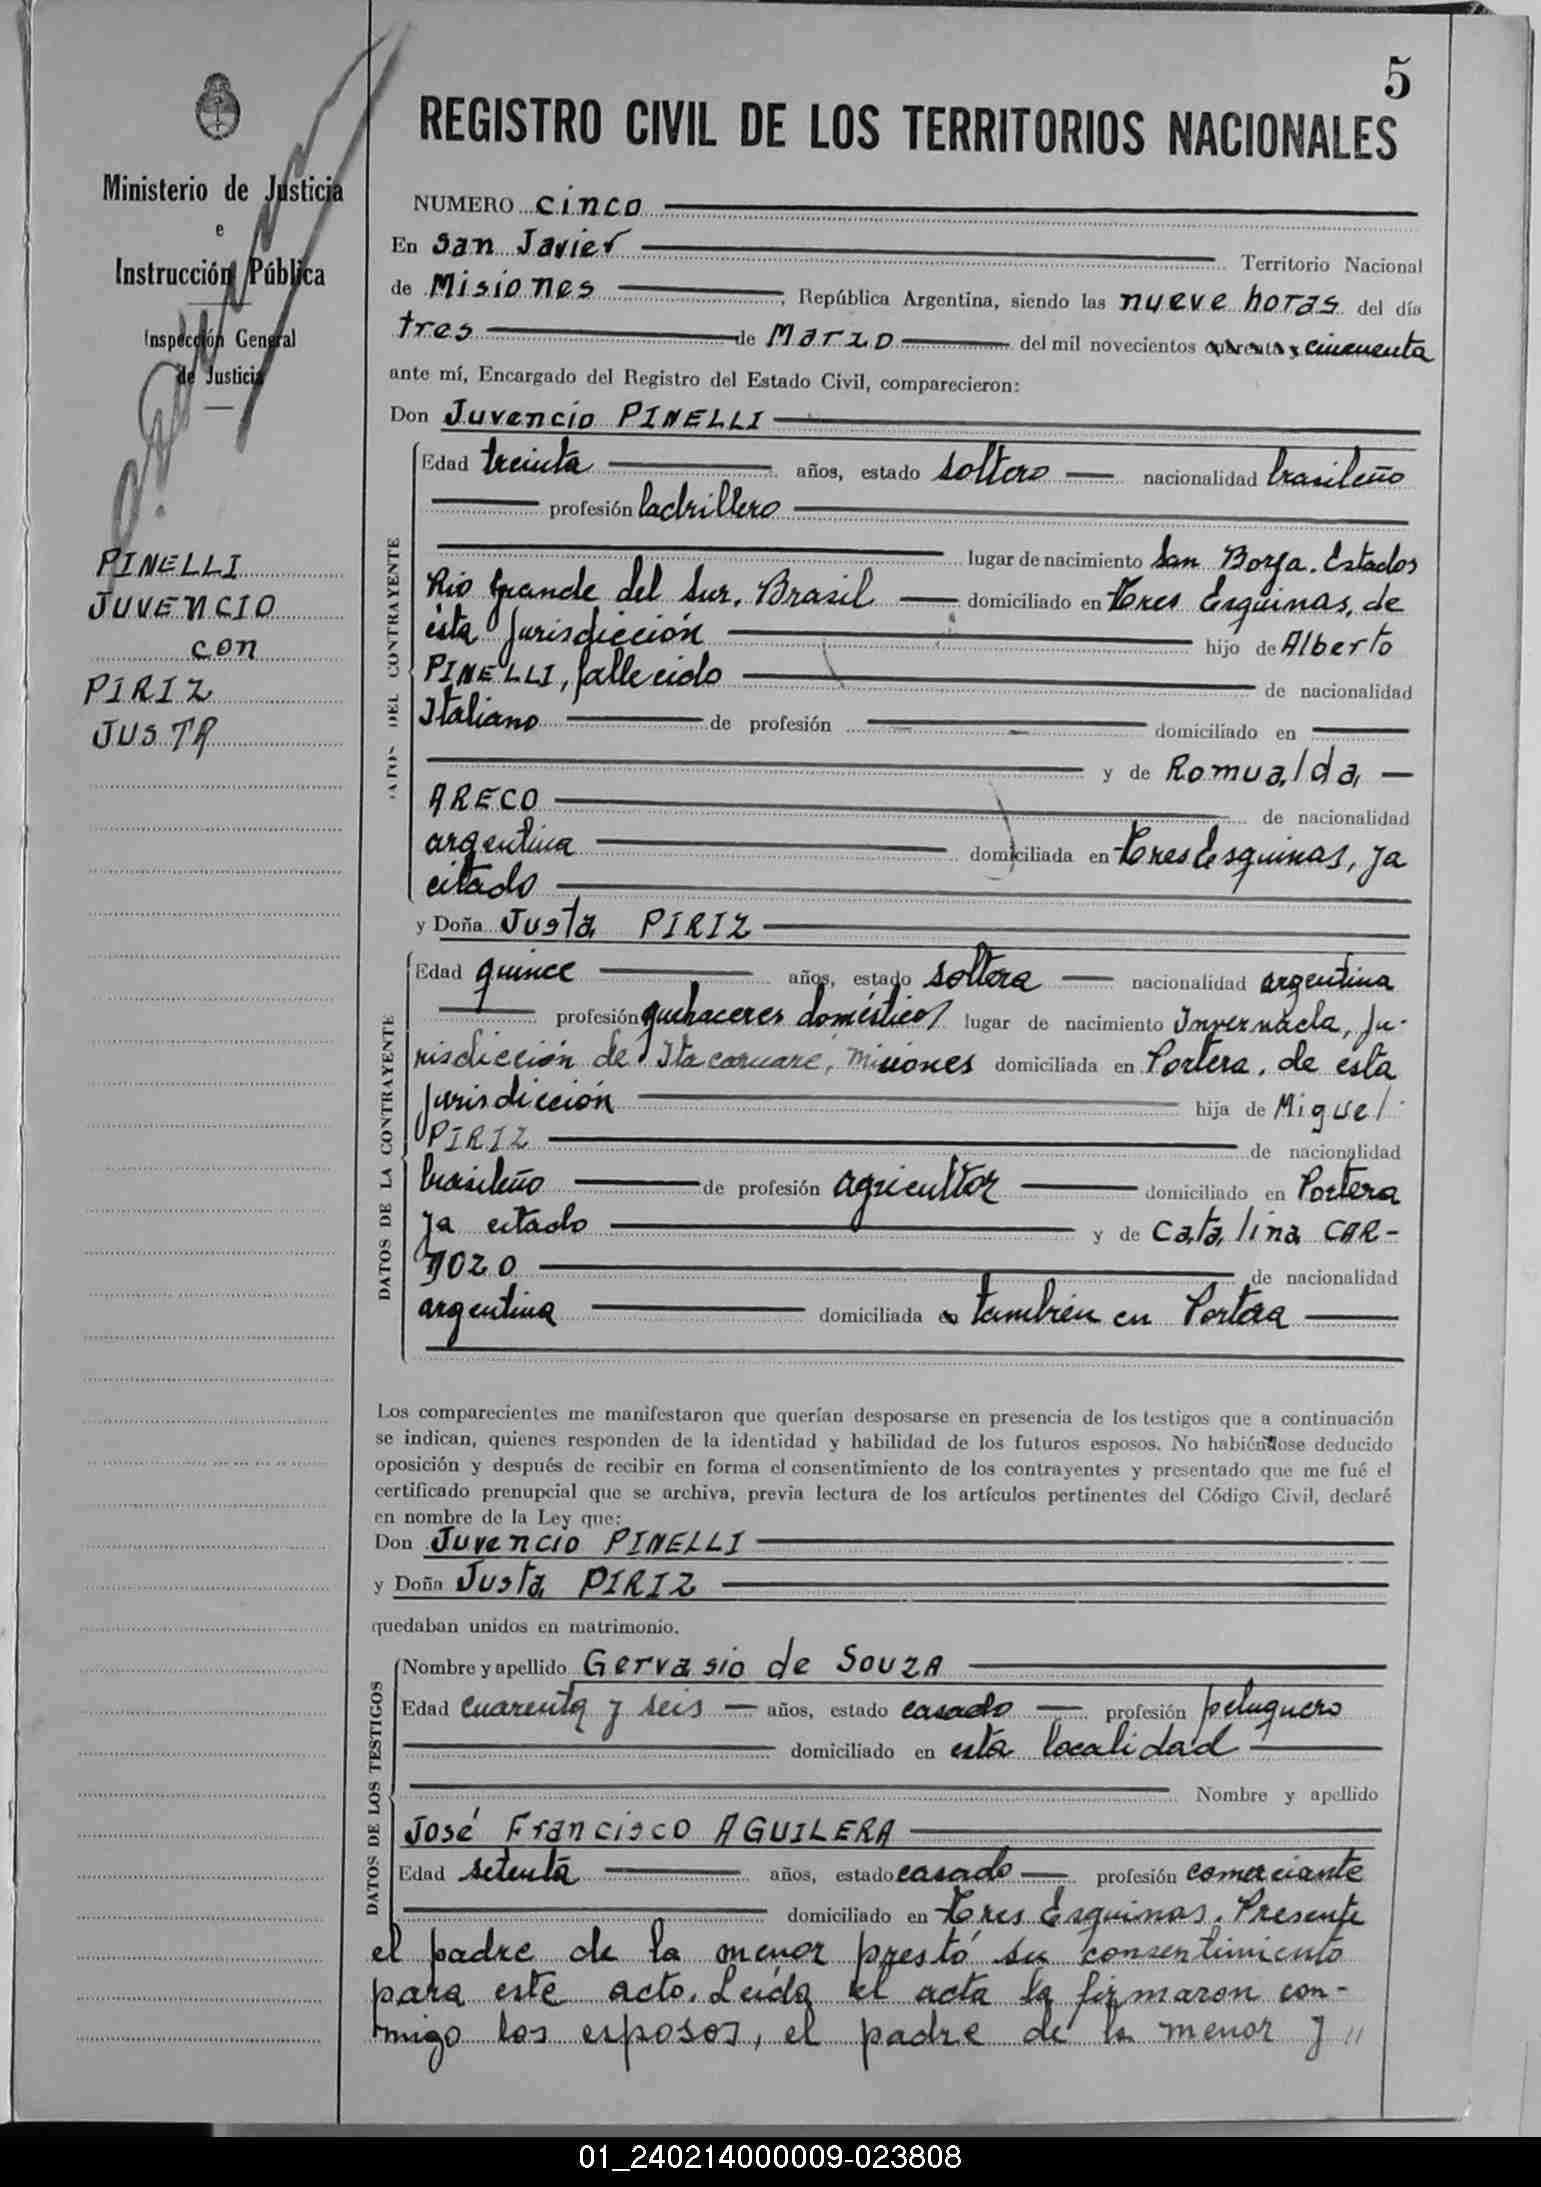 5
REGISTRO CIVIL DE LOS TERRITORIOS NACIONALES
Ministerio de Justicia
e
Instrucción Pública
Inspección General
de Justicia
PINELLI
JUVENCIO
con
PIRIZ
JUSTA
NUMERO cinco
En San Javier Territorio Nacional
de Misiones, República Argentina, siendo las nueve horas del día
tres de Marzo del mil novecientos cuarenta y cincuenta
ante mí, Encargado del Registro del Estado Civil, comparecieron:
Don Juvencio PINELLI
DATOS DEL CONTRAYENTE
Edad treinta años, estado soltero nacionalidad brasileño
profesión ladrillero
lugar de nacimiento San Borja. Estados
Rio Grande del Sur. Brasil domiciliado en Tres Esquinas, de
ésta jurisdicción hijo de Alberto
PINELLI, fallecido de nacionalidad
Italiano de profesión domiciliado en
y de Romualda
ARECO de nacionalidad
argentina domiciliada en Tres Esquinas, ya
citado
y Doña Justa PIRIZ
DATOS DE LA CONTRAYENTE
Edad quince años, estado soltera nacionalidad argentina
profesión quehaceres domésticos lugar de nacimiento Invernada, ju-
risdicción de Itacaruaré, Misiones domiciliada en Portera, de esta
jurisdicción hija de Miguel
PIRIZ de nacionalidad
brasileño de profesión agricultor domiciliado en Portera
ya citado y de Catalina CAR-
DOZO de nacionalidad
argentina domiciliada también en Portera
Los comparecientes me manifestaron que querían desposarse en presencia de los testigos que a continuación
se indican, quienes responden de la identidad y habilidad de los futuros esposos. No habiéndose deducido
oposición y después de recibir en forma el consentimiento de los contrayentes y presentado que me fué el
certificado prenupcial que se archiva, previa lectura de los artículos pertinentes del Código Civil, declaré
en nombre de la Ley que:
Don Juvencio PINELLI
y Doña Justa PIRIZ
quedaban unidos en matrimonio.
DATOS DE LOS TESTIGOS
Nombre y apellido Gervasio de SOUZA
Edad cuarenta y seis años, estado casado profesión peluquero
domiciliado en esta localidad
Nombre y apellido
José Francisco AGUILERA
Edad setenta años, estado casado profesión comerciante
domiciliado en Tres Esquinas. Presente
el padre de la menor prestó su consentimiento
para este acto. Leída el acta la firmaron con-
migo los esposos, el padre de la menor y //
01_240214000009-023808